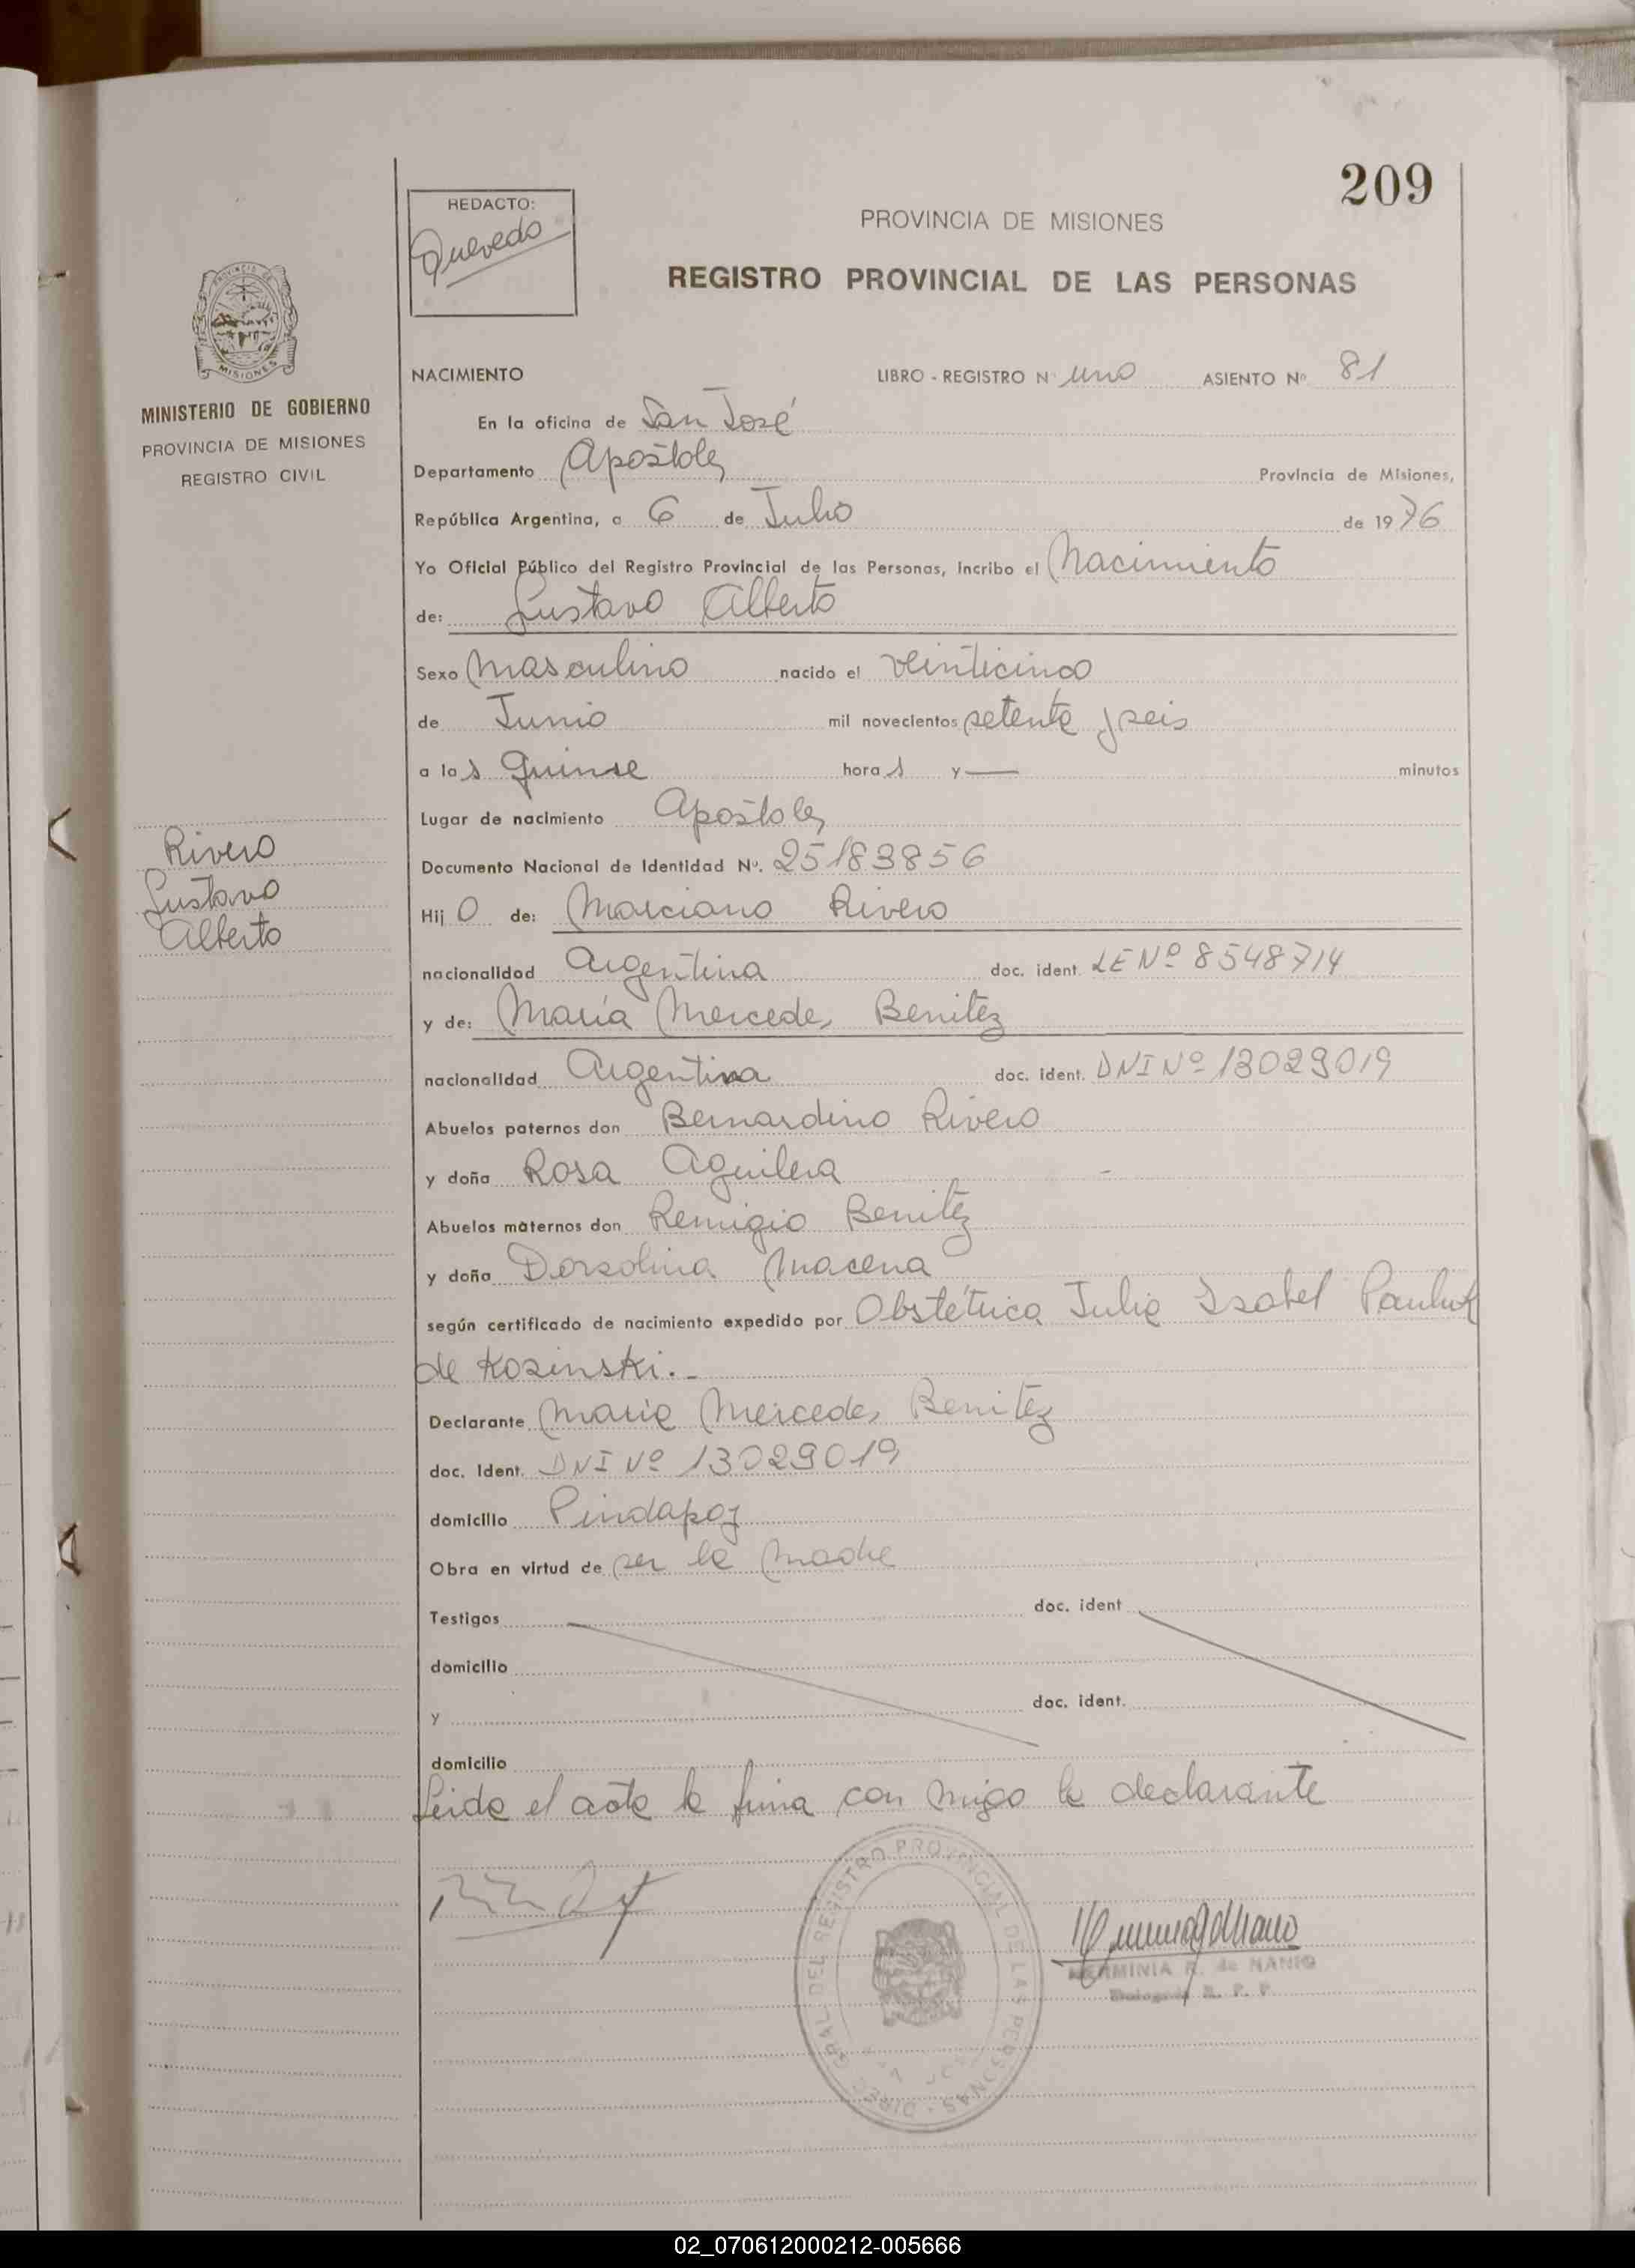 209
REDACTO:
Quevedo
PROVINCIA DE MISIONES
REGISTRO PROVINCIAL DE LAS PERSONAS
PROVINCIA DE MISIONES
MINISTERIO DE GOBIERNO
PROVINCIA DE MISIONES
REGISTRO CIVIL
NACIMIENTO LIBRO - REGISTRO Nº uno ASIENTO Nº 81
En la oficina de San José
Departamento Apóstoles Provincia de Misiones,
República Argentina, a 6 de Julio de 1976
Yo Oficial Público del Registro Provincial de las Personas, incribo el Nacimiento
de: Gustavo Alberto
Sexo Masculino nacido el veinticinco
de Junio mil novecientos setenta y seis
a las Quinse horas y — minutos
Lugar de nacimiento Apóstoles
Rivero
Gustavo
Alberto
Documento Nacional de Identidad Nº. 25183856
Hijo de: Marciano Rivero
nacionalidad Argentina doc. ident. LE Nº 8548714
y de: María Mercedes Benitez
nacionalidad Argentina doc. ident. DNI Nº 13029019
Abuelos paternos don Bernardino Rivero
y doña Rosa Aguilera
Abuelos maternos don Remigio Benitez
y doña Dorsolina Macena
según certificado de nacimiento expedido por Obstétrica Julia Isabel
de Kosinski.-
Declarante María Mercedes Benitez
doc. Ident. DNI Nº 13029019
domicilio Pindapoy
Obra en virtud de ser la Madre
Testigos doc. ident
domicilio
y doc. ident.
domicilio
Leida el acta la firma con migo la declarante
DIREC. GRAL. DEL REGISTRO PROVINCIAL DE LAS PERSONAS
HERMINIA R. de NANIO
Delegada R. P. P.
02_070612000212-005666